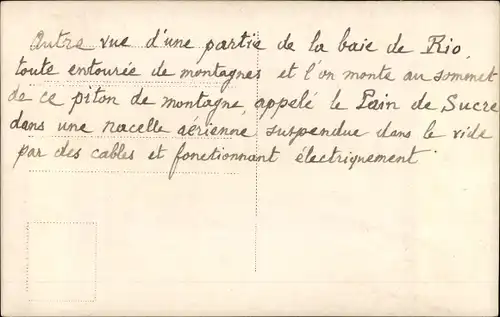 Autre vue d'une partie de la baie de Rio,
toute entourée de montagnes et l'on monte au sommet
de ce piton de montagne, appelé le Pain de Sucre
dans une nacelle aérienne, suspendue dans le vide
par des cables et fonctionnant électriquement.